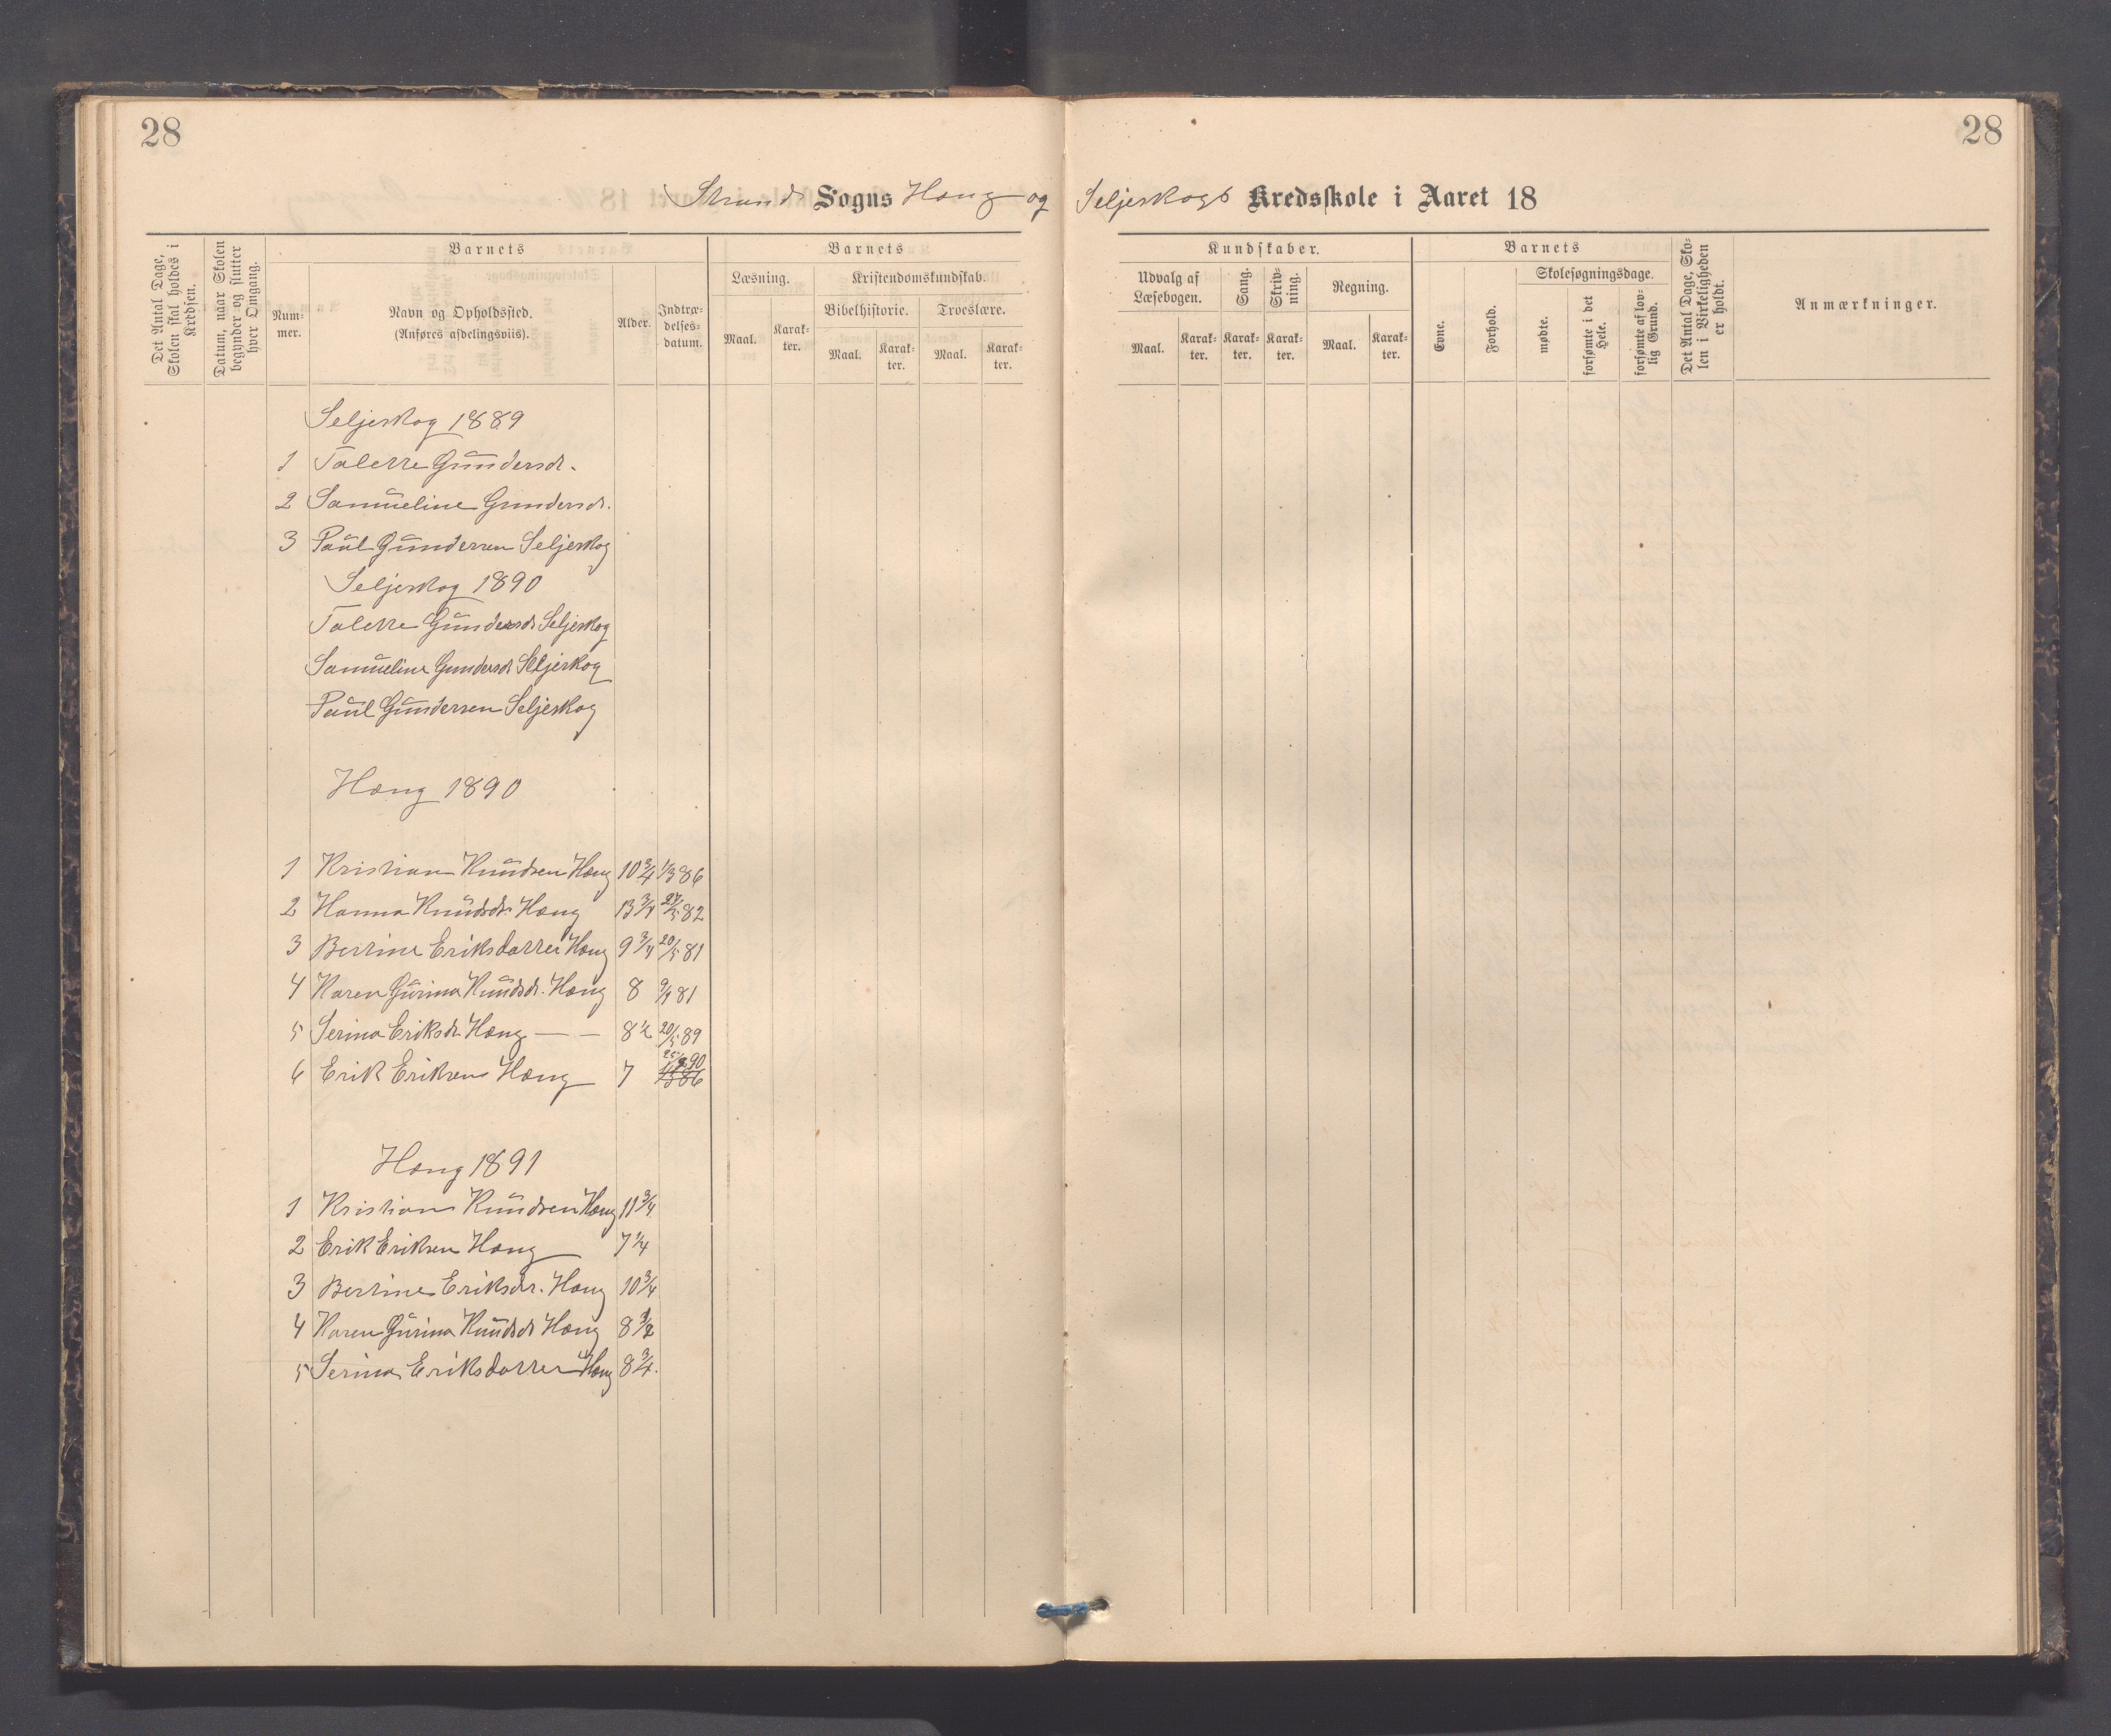 28
28
Strands Sogns Hæng og Seljeskogs Kredsskole i Aaret 18
Det Antal Dage, Skolen skal holdes i Kredsen.
Datum, naar Skolen begynder og slutter hver Omgang.
Barnets
Nummer.
Navn og Opholdssted.
(Anføres afdelingsviis).
Alder.
Indtrædelsesdatum.
Barnets
Læsning.
Kristendomskundskab.
Bibelhistorie.
Troeslære.
Maal.
Karakter.
Maal.
Karakter.
Maal.
Karakter.
Kundskaber.
Udvalg af Læsebogen.
Sang.
Skrivning.
Regning.
Maal.
Karakter.
Karakter.
Karakter.
Maal.
Karakter.
Barnets
Evne.
Forhold.
Skolesøgningsdage.
mødte.
forsømte i det Hele.
forsømte af lovlig Grund.
Det Antal Dage, Skolen i Virkeligheden er holdt.
Anmærkninger.
Seljeskog 1889
1 Talette Gundersdt.
2 Samueline Gundersdt.
3 Paul Gundersen Seljeskog
Seljeskog 1890
Talette Gundersdt Seljeskog
Samueline Gundersdt Seljeskog
Paul Gundersen Seljeskog
Hæng 1890
1 Kristian Knudsen Hæng 10 3/4 1/3 86
2 Hanna Knudsdt. Hæng 13 3/4 27/5 82
3 Bertine Eriksdatter Hæng 9 3/4 20/5 81
4 Karen Gurina Knudsdt. Hæng 8 9/9 81
5 Serina Eriksdt. Hæng — — 8 1/2 20/5 89
6 Erik Eriksen Hæng 7
Hæng 1891
1 Kristian Knudsen Hæng 11 3/4
2 Erik Eriksen Hæng 7 1/4
3 Bertine Eriksdtr. Hæng 10 3/4
4 Karen Gurina Knudsdt Hæng 8 1/2
5 Serina Eriksdatter Hæng 8 3/4.